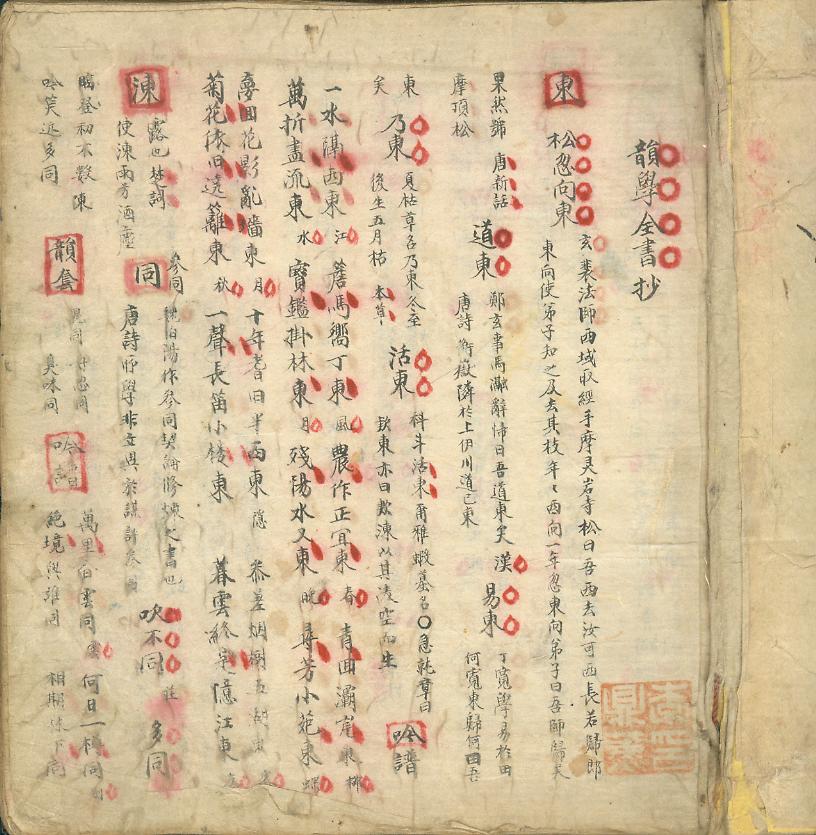 韻學全書抄
東
松忽向東
玄奘法師西域取經手摩灵岩寺松曰吾西去汝可西長若歸即
東向使弟子知之及去其枝年〻西向一年忽東向弟子曰吾師歸矣
果然號 唐新話
摩頂松
道東
鄭玄事馬融辭歸曰吾道東矣 漢
唐詩 衡嶽隣於上伊川道已東
易東
丁寬學易於田
何寬東歸何曰吾
易東
矣
乃東
夏枯草名乃東冬至
後生五月枯 本草
活東
科斗活東 爾雅蝦蟇名〇急就章曰
款東亦曰款凍以其凌空而生
吟譜
一水 西東 江 簷馬嚮丁東 風 農作正宜東 春 青回灞岸東 柳
萬折盡流東 水 寶鑑掛林東 月 殘陽水又東 晚 尋芳小苑東 蝶
夢回花影亂墻東 月 十年耆旧半西東 隱 參差烟樹五湖東
菊花依旧遶籬東 秋 一聲長笛小樓東 暮雲終  憶江東
涷
露也 楚詞
使涷雨兮洒塵
同
參同
魏伯陽作參同契 修煉之書也
唐詩 學非
吹不同
多同
臨登初不數
吟笑近多同
韻套
臭味同
吟
萬里白雲同 何日一樽同
絕境與誰同 相期林下同